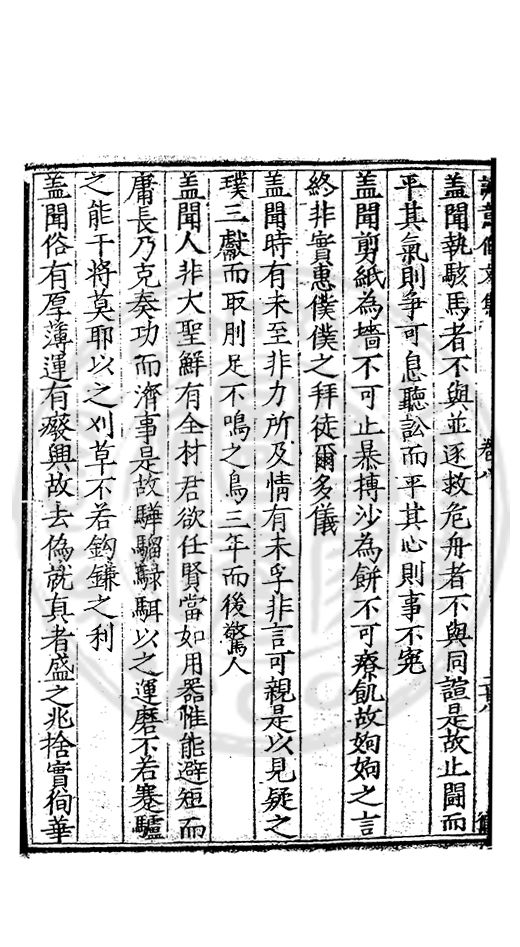 誠意伯文集 卷八
蓋聞執駭馬者不與並逐救危舟者不與同諠是故止鬪而
平其氣則争可息聽訟而平其心則事不寃
蓋聞剪紙為墻不可止暴摶沙為餅不可療飢故姁姁之言
終非實惠僕僕之拜徒爾多儀
蓋聞時有未至非力所及情有未孚非言可親是以見疑之
璞三獻而取刖足不鳴之鳥三年而後驚人
蓋聞人非大聖鮮有全材君欲任賢當如用器惟能避短而
庸長乃克奏功而濟事是故驊騮騄駬以之運磨不若蹇驢
之能干將莫耶以之刈草不若鈎鎌之利
蓋聞俗有厚薄運有廢興故去偽就真者盛之兆捨實徇華